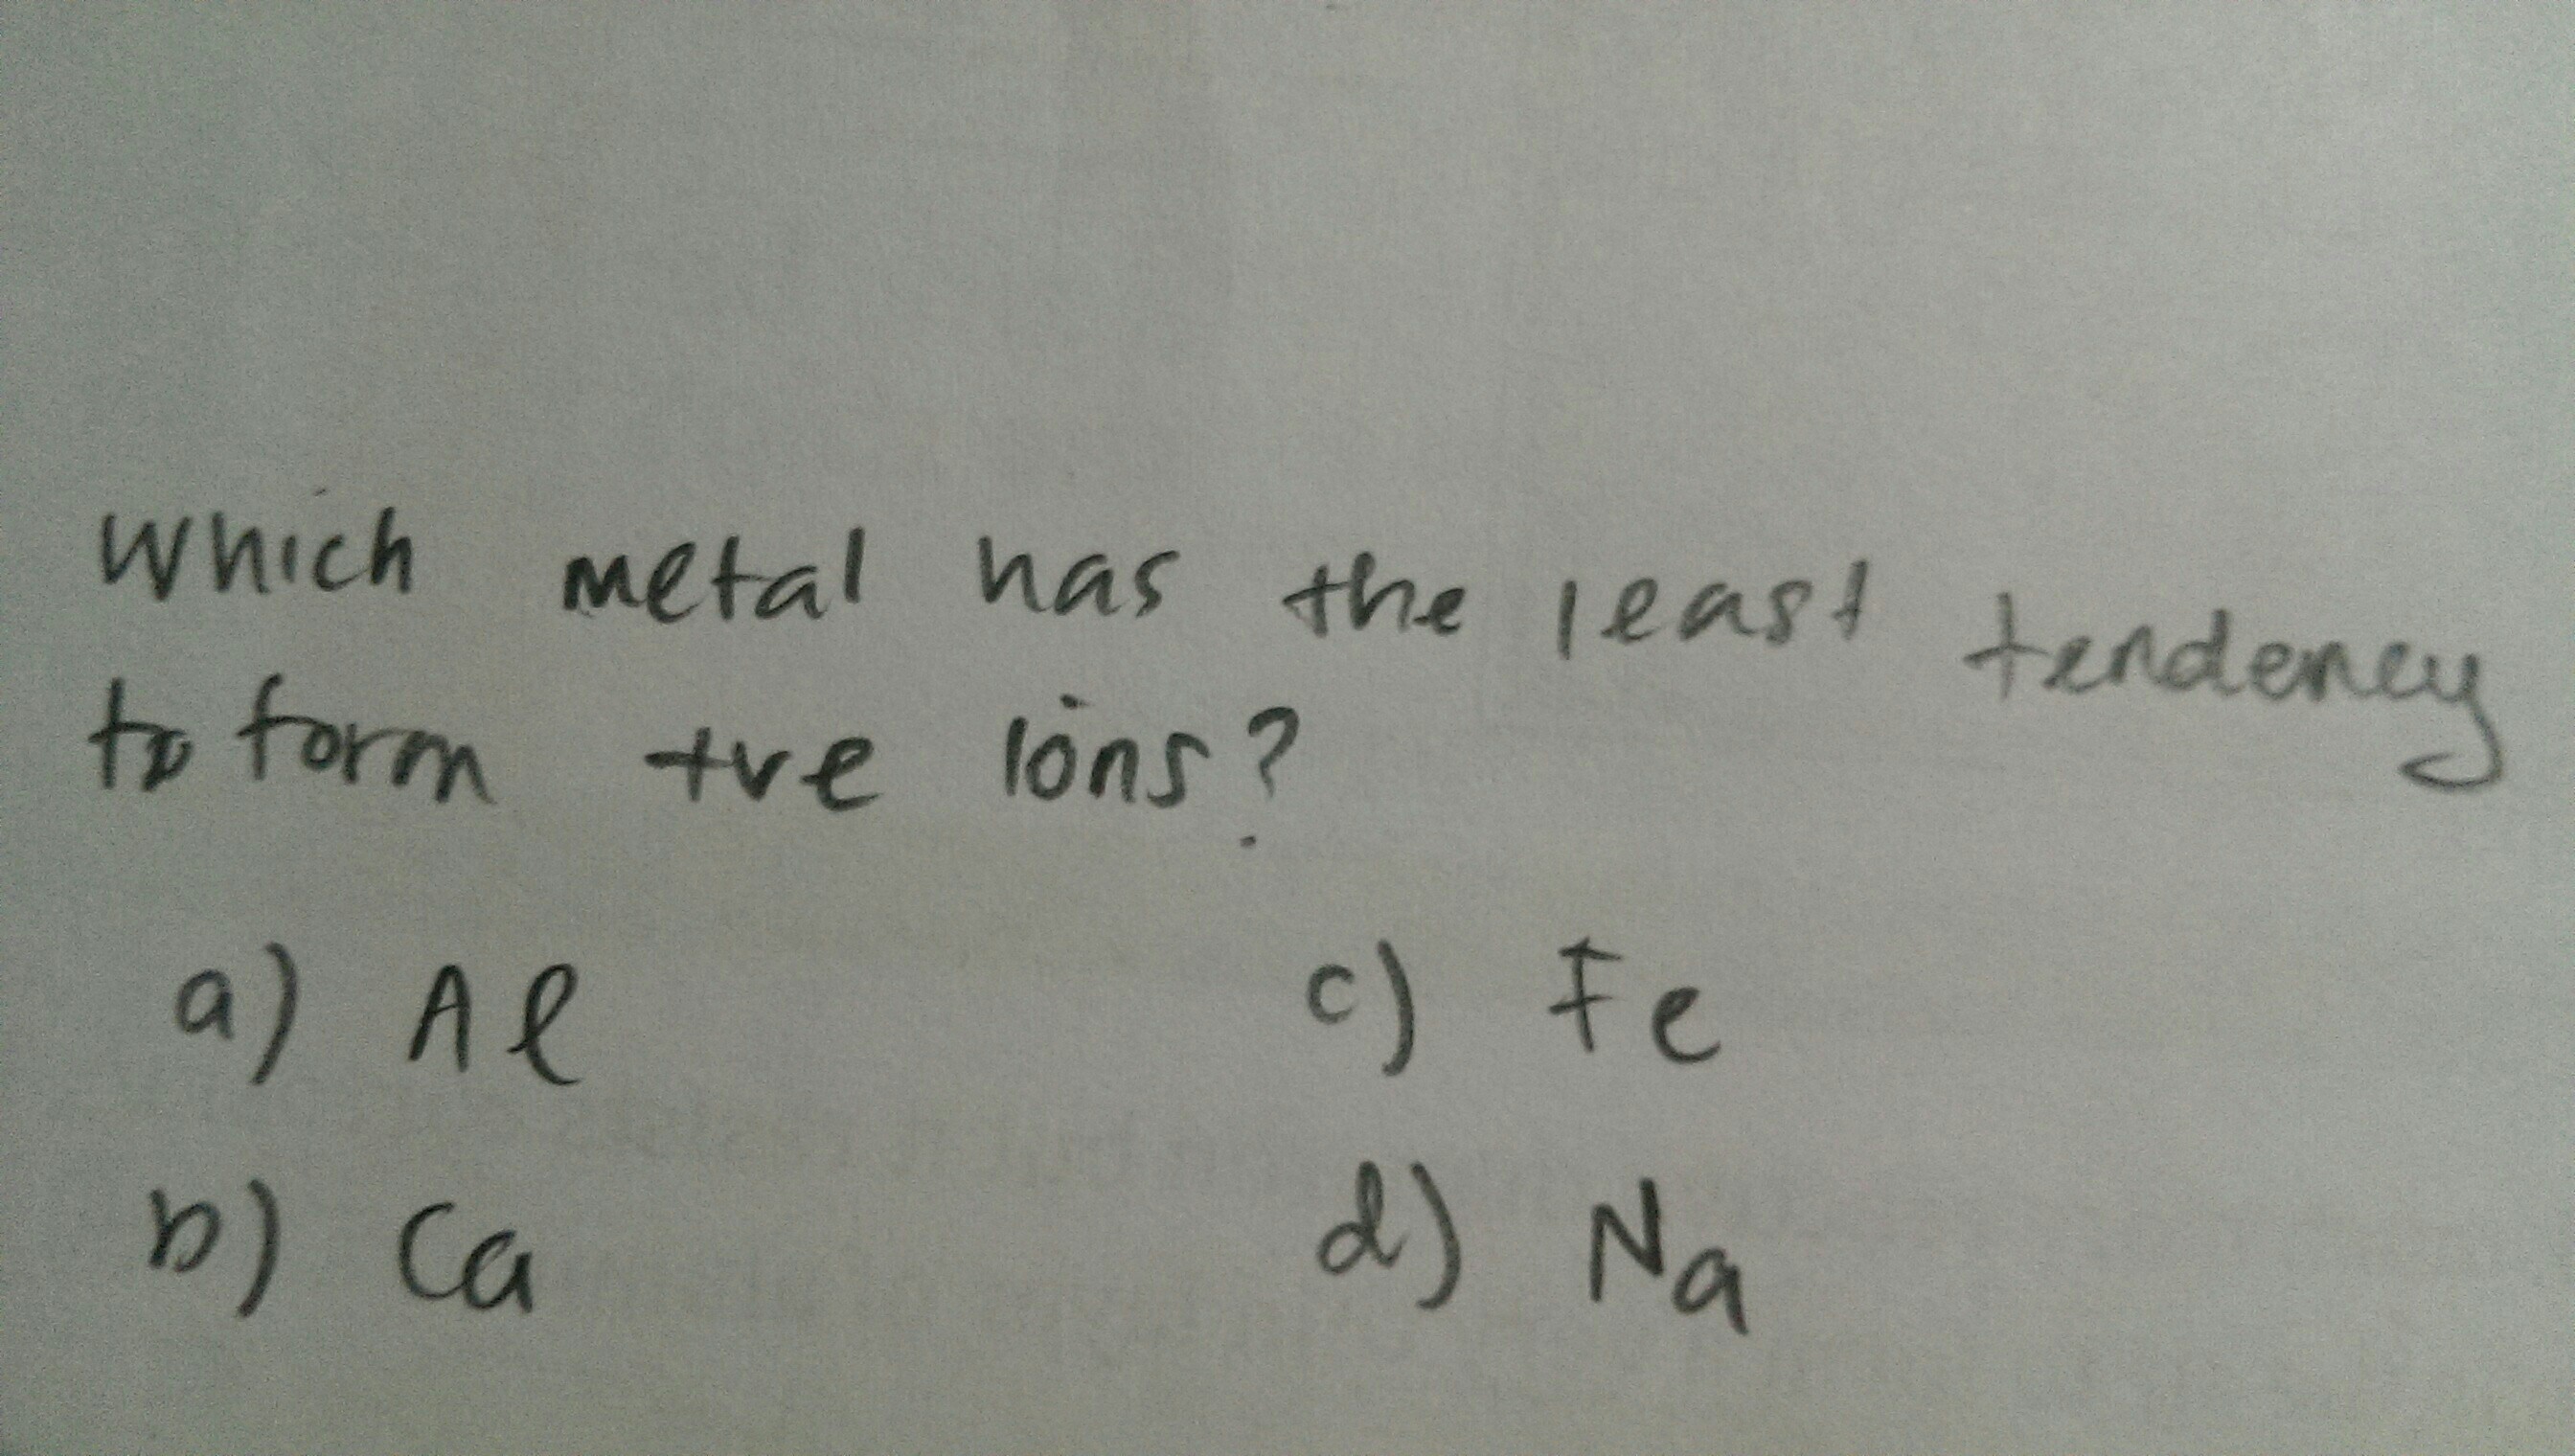 Which metal has the least tendency
to form +ve ions?
a) Al
c) Fe
b) Ca
d) Na